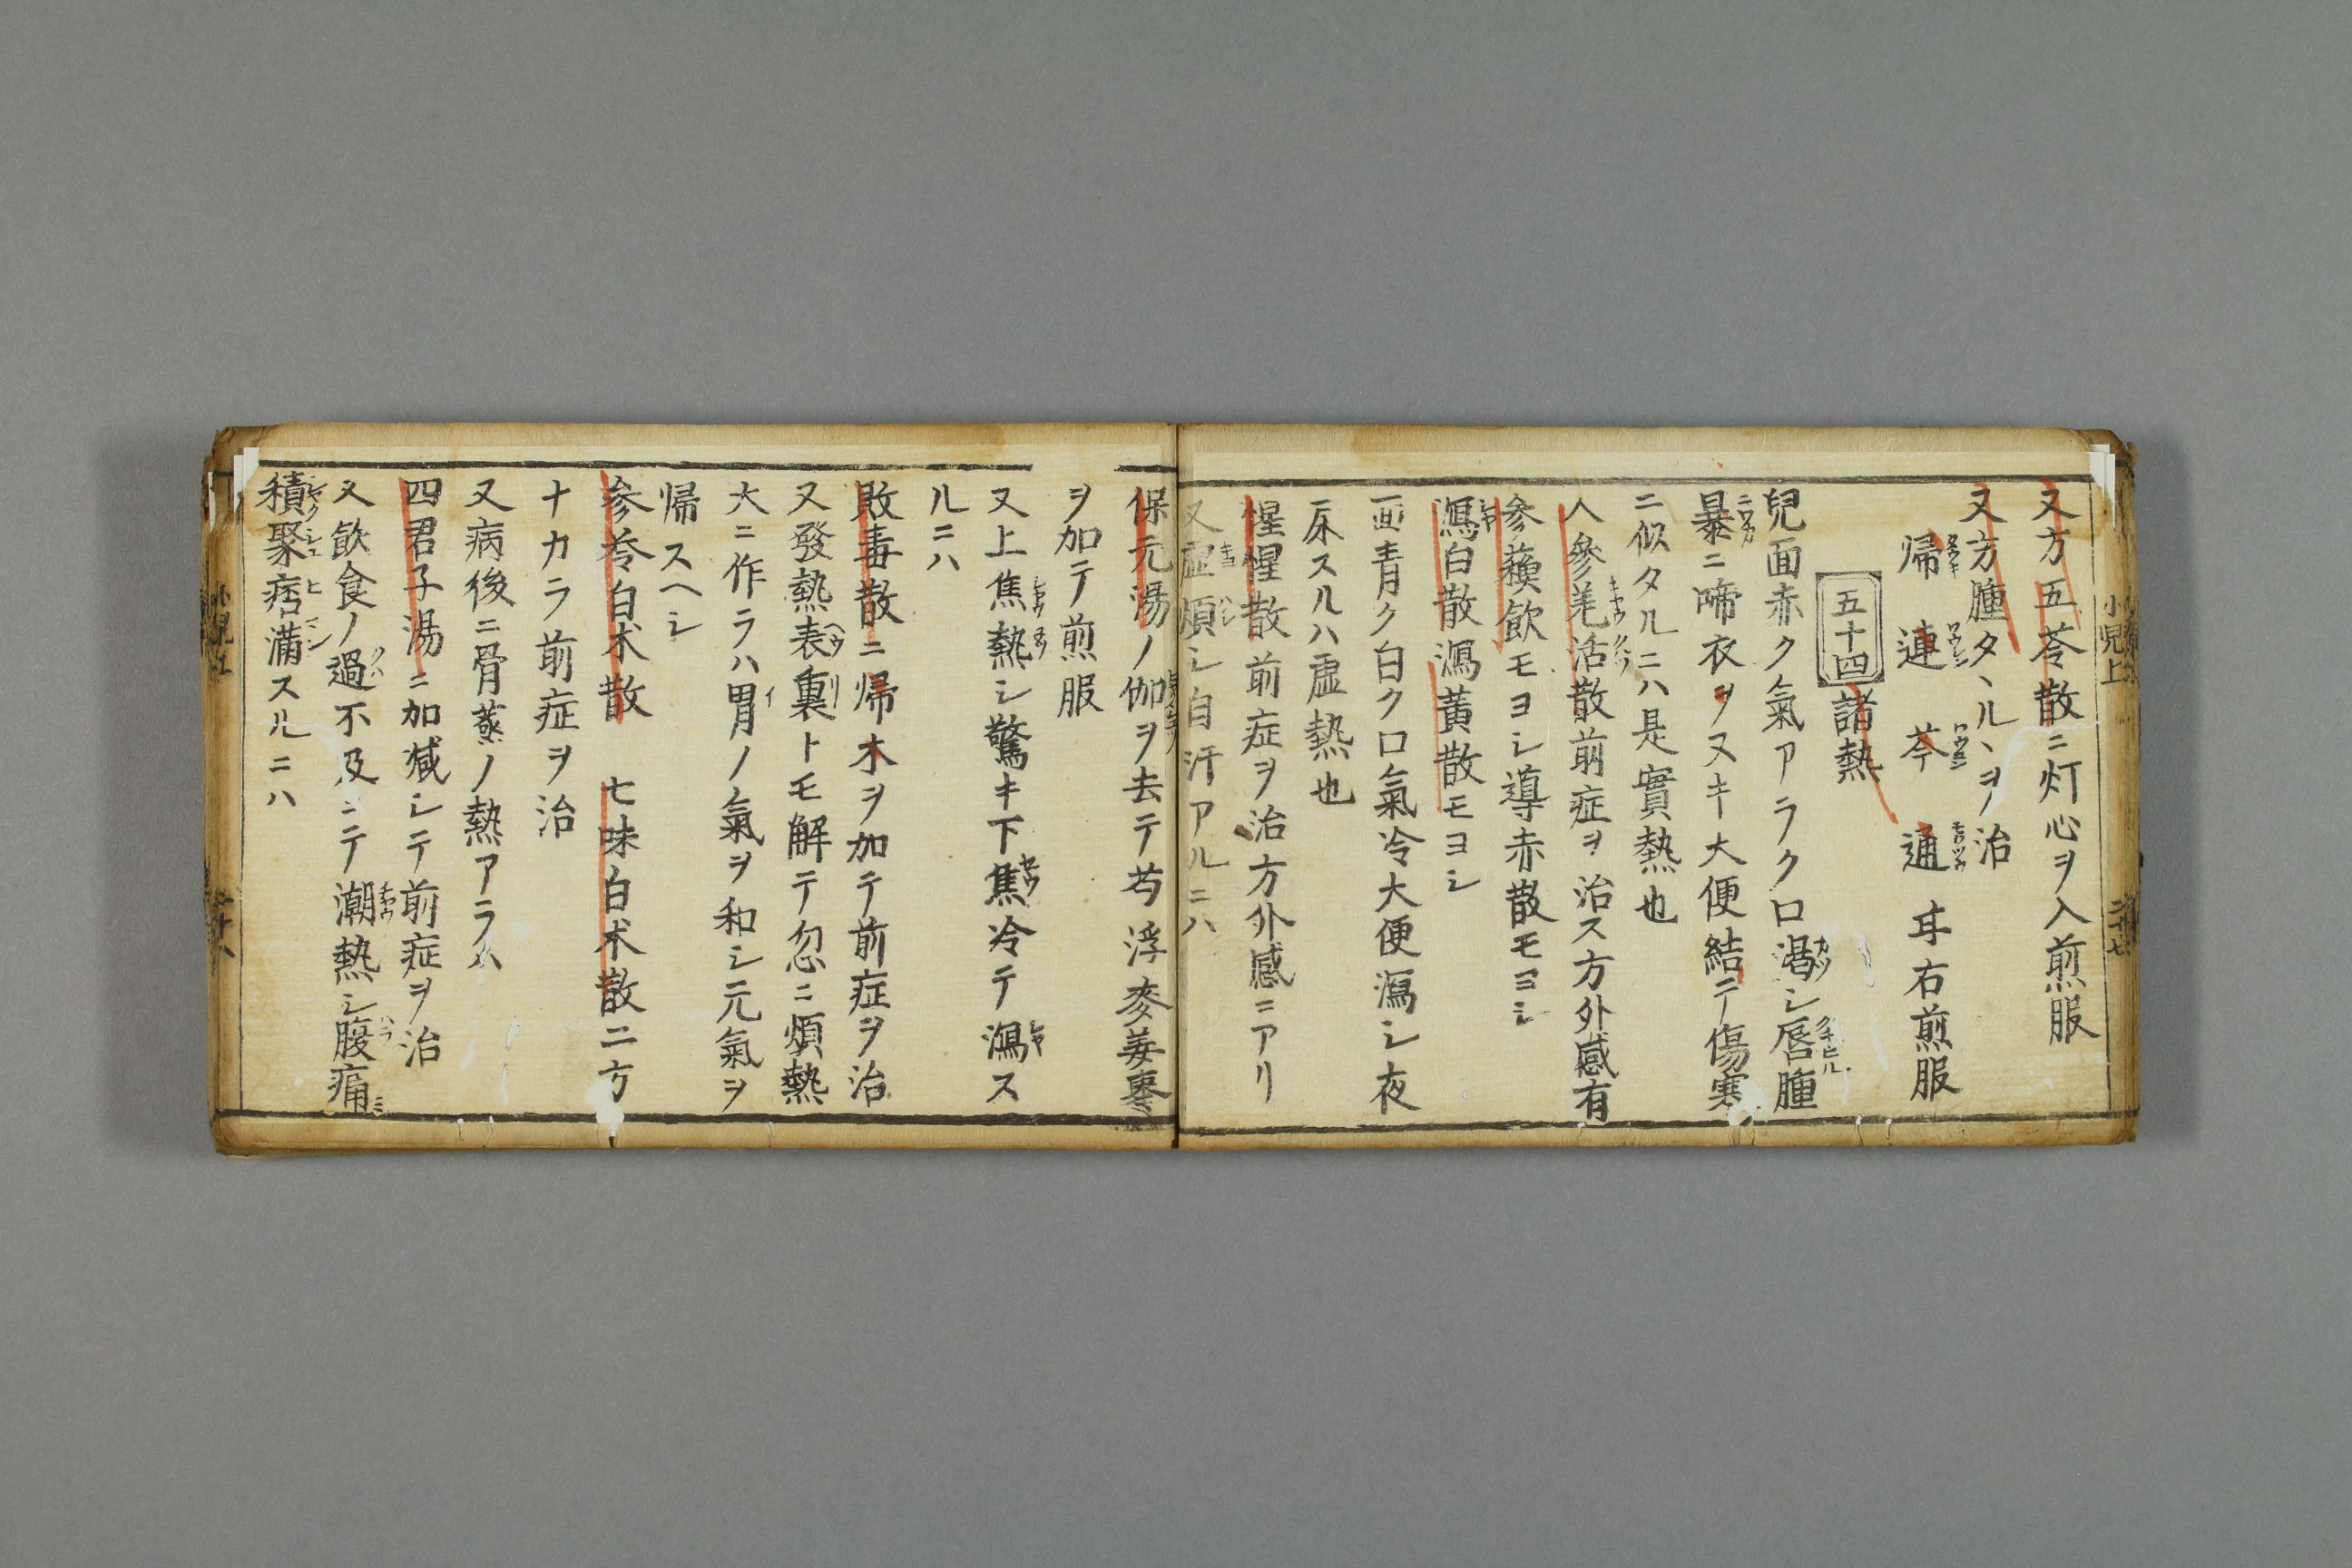 又方五苓散ニ灯心ヲ入煎服
又方腫タヽルヽヲ治
帰 連 芩 通 耳右煎服
五十四 諸熱
兒面赤ク氣アラク口渇シ唇腫
暴ニ啼衣ヲヌキ大便結テ傷寒
ニ似タルニハ是實熱也
人參羌活散前症ヲ治ス方外感有
參蘓飲モヨシ導赤散モヨシ
瀉白散瀉黄散モヨシ
面青ク白ク口氣冷大便瀉シ夜
尿スルハ虚熱也
惺惺散前症ヲ治方外感ニアリ
又虚煩シ自汗アルニハ
保元湯ノ伽ヲ去テ芍浮麥姜棗
ヲ加テ煎服
又上焦熱シ驚キ下焦冷テ瀉ス
ルニハ
敗毒散ニ帰木ヲ加テ前症ヲ治
又發熱表裏トモ解テ忽ニ煩熱
大ニ作ラハ胃ノ氣ヲ和シ元氣ヲ
帰スヘシ
參苓白朮散 七味白朮散二方
ナカラ前症ヲ治
又病後ニ骨蒸ノ熱アラハ
四君子湯ニ加减シテ前症ヲ治
又飲食ノ過不及ニテ潮熱シ腹痛
積聚痞滿スルニハ
小兒上